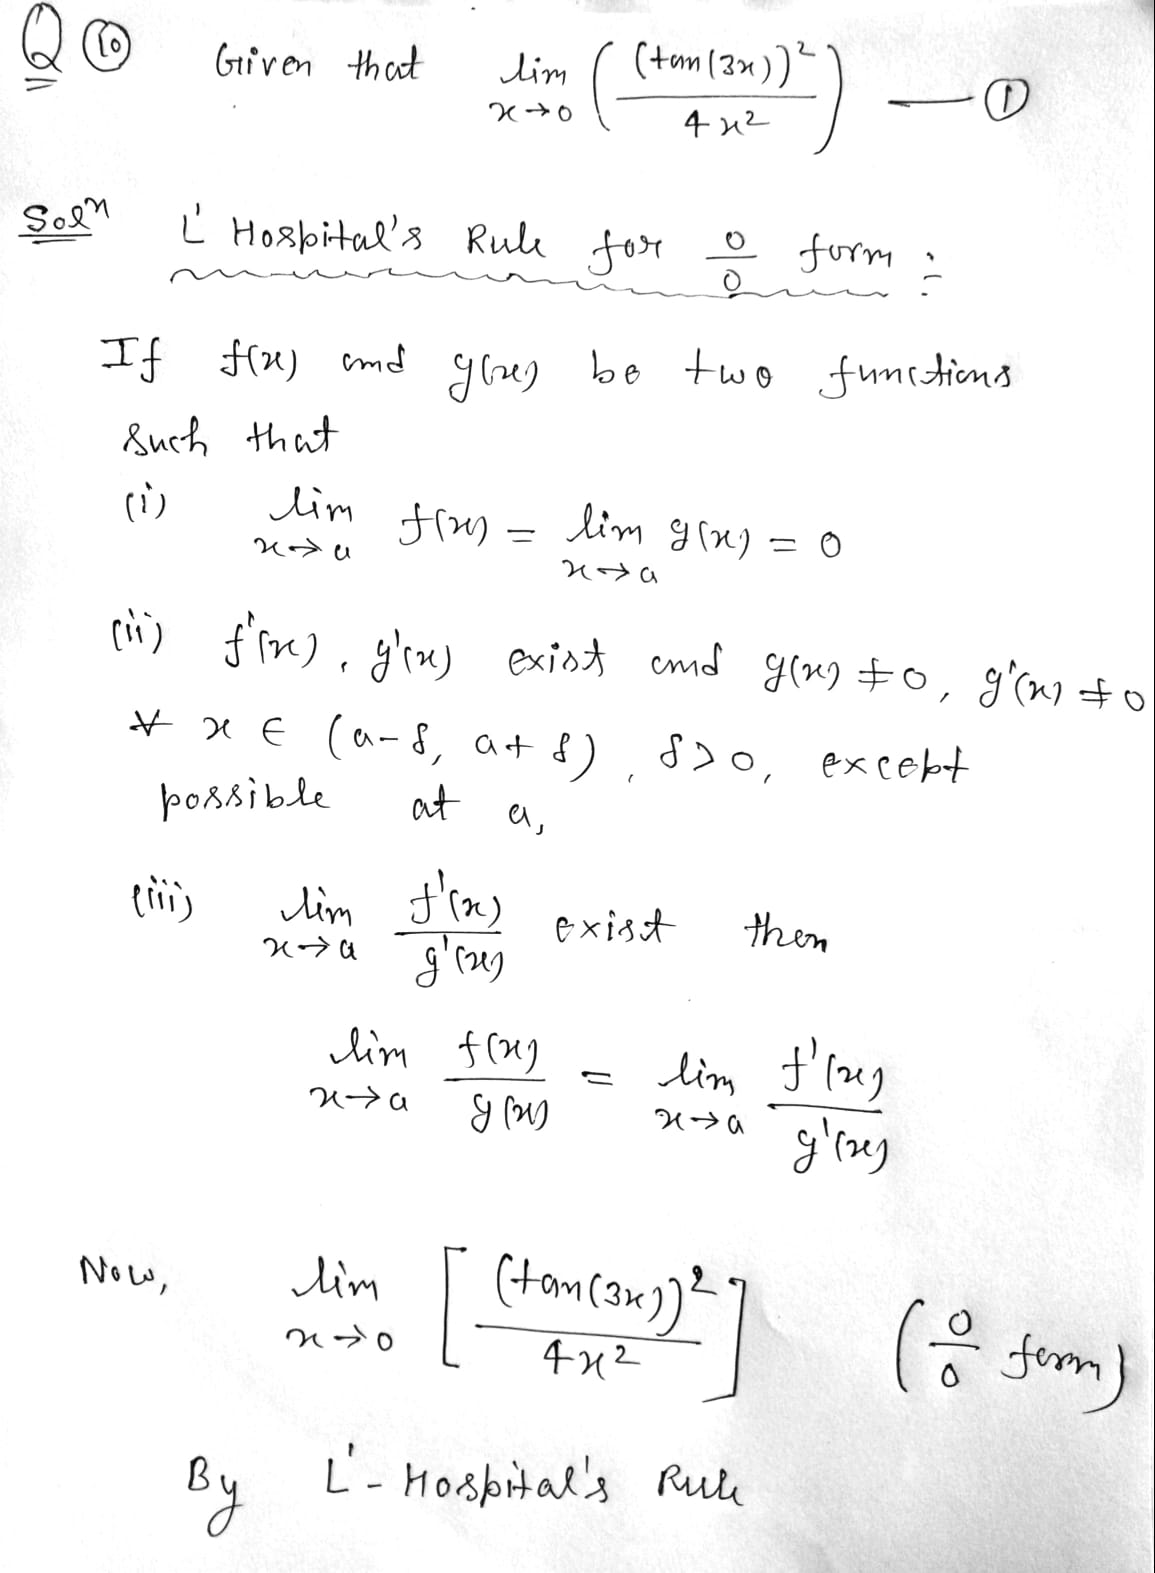 Q ⑩ Given that lim x→0 ( (tan(3x))² / 4x² ) — ①
Solⁿ L' Hospital's Rule for 0/0 form :-
If f(x) and g(x) be two functions
such that
(i) lim x→a f(x) = lim x→a g(x) = 0
(ii) f'(x), g'(x) exist and g(x) ≠ 0, g'(x) ≠ 0
∀ x ∈ (a-δ, a+δ), δ>0, except
possible at a,
(iii) lim x→a f'(x) / g'(x) exist then
lim x→a f(x) / g(x) = lim x→a f'(x) / g'(x)
Now, lim x→0 [ (tan(3x))² / 4x² ] (0/0 form)
By L'-Hospital's Rule